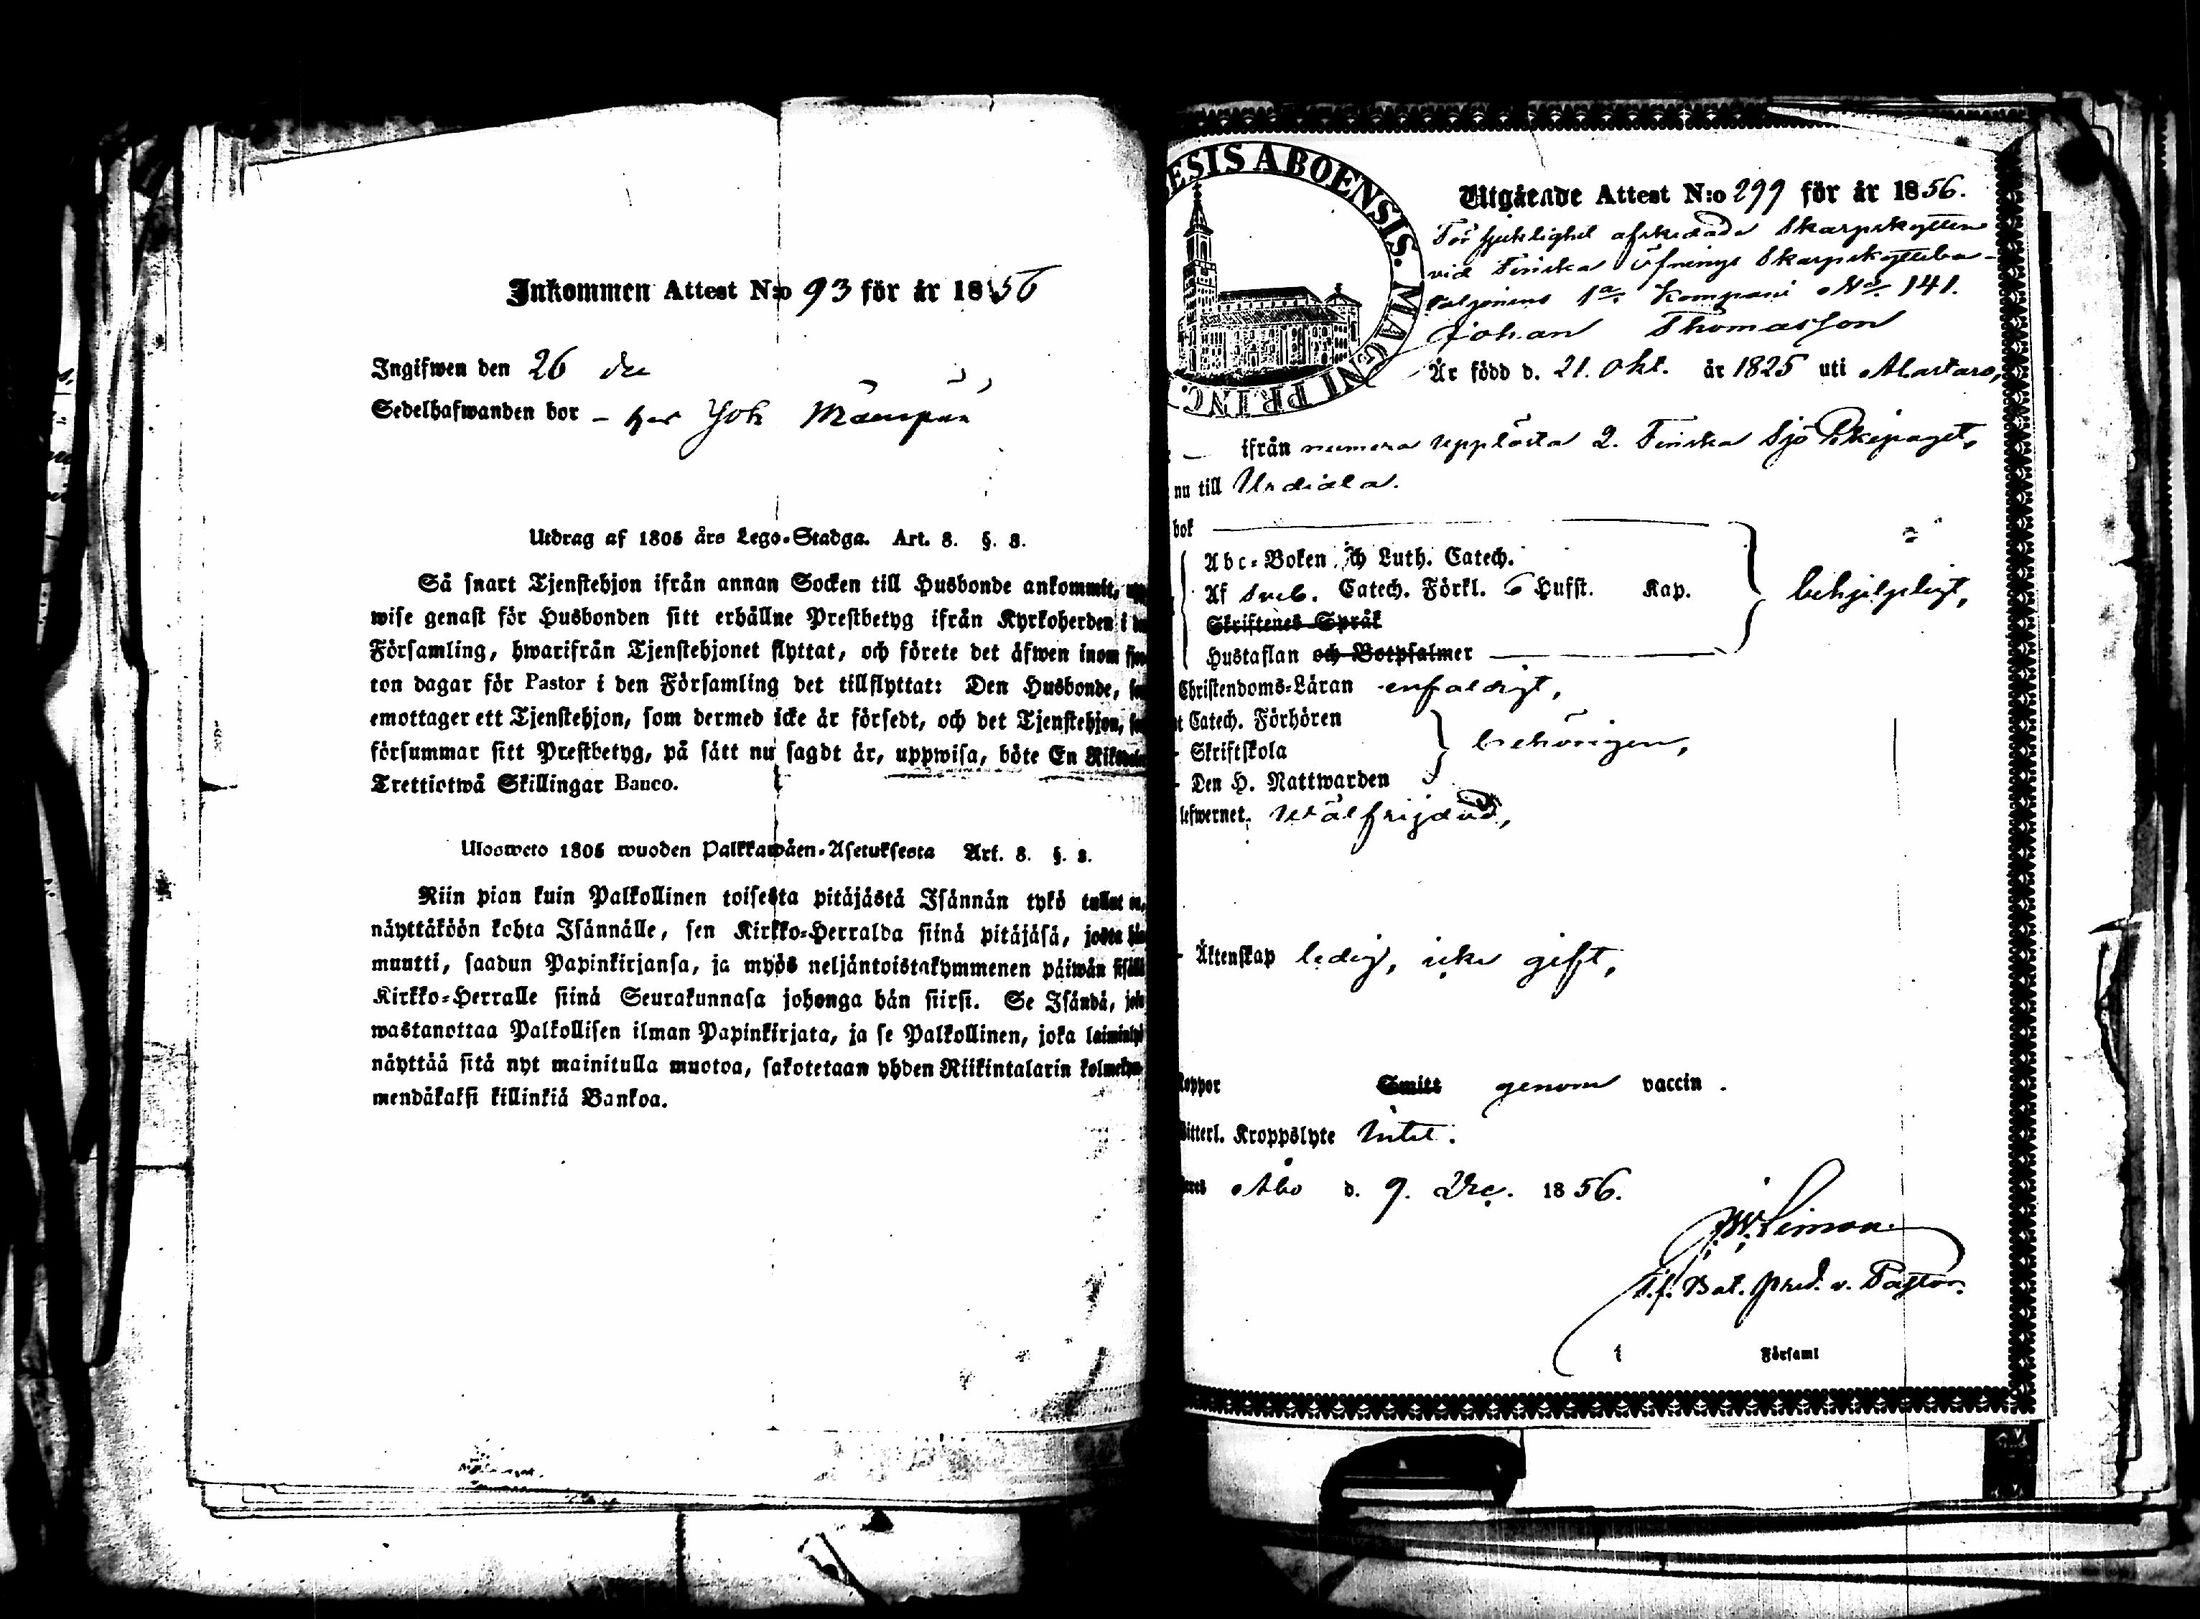 Inkommen Attest N:o 93 för år 1856
Ingifwen den 26 Dec
Sedelhafwanden bor – hos Joh Mäenpää
Utdrag af 1805 års Lego-Stadga. Art. 8. §. 8.
Så snart Tjenstehjon ifrån annan Socken till Husbonde ankommit,
wise genast för Husbonden sitt erhållne Prestbetyg ifrån Kyrkoherden i
Församling, hwarifrån Tjenstehjonet flyttat, och förete det äfwen inom
ton dagar för Pastor i den Församling det tillflyttat: Den Husbonde,
emottager ett Tjenstehjon, som dermed icke är försedt, och det Tjenstehjon,
försummar sitt Prestbetyg, på sätt nu sagdt är, uppwisa, böte En
Trettiotwå Skillingar Banco.
Ulosweto 1805 wuoden Palkkawäen-Asetuksesta Art. 8. §. 8.
Niin pian kuin Palkollinen toisesta pitäjästä Isännän tykö tullut on,
näyttäköön kohta Isännälle, sen Kirkko-Herralda siinä pitäjäsä, josta
muutti, saadun Papinkirjansa, ja myös neljäntoistakymmenen päiwän
Kirkko-Herralle siinä Seurakunnasa johonga hän siirsi. Se Isändä,
wastanottaa Palkollisen ilman Papinkirjata, ja se Palkollinen, joka
näyttää sitä nyt mainitulla muotoa, sakotetaan yhden Riikintalarin
mendäkaksi killinkiä Bankoa.
ESIS ABOENSIS. MAGNI PRINC.
Utgående Attest N:o 299 för år 1856.
För sjuklighet afskedade Skarpskytten
vid Finska Öfnings Skarpskytteba-
taljonens 1a. Kompani No. 141.
Johan Thomasson
Är född d. 21. Okt. år 1825 uti Martars,
ifrån numera upplösta 2. Finska Sjö Ekipaget,
nu till Urdiala.
bok
Abc-Boken och Luth. Catech.
Af Sveb. Catech. Förkl. 6 Hufst. Kap.
Skriftenes Språk
Hustaflan och Botpsalmer
behjelpligt,
Christendoms-Läran enfaldigt,
Catech. Förhören
Skriftskola
Den H. Nattwarden
behörigen,
lefwernet. Wälfrejdad,
Äktenskap ledig, icke gift,
Koppor Smitt genom vaccin.
Kroppslyte Intet.
Åbo d. 9. Dec. 1856.
J. W. Limon
T.f. Bat. pred. v. Pastor.
i Församl